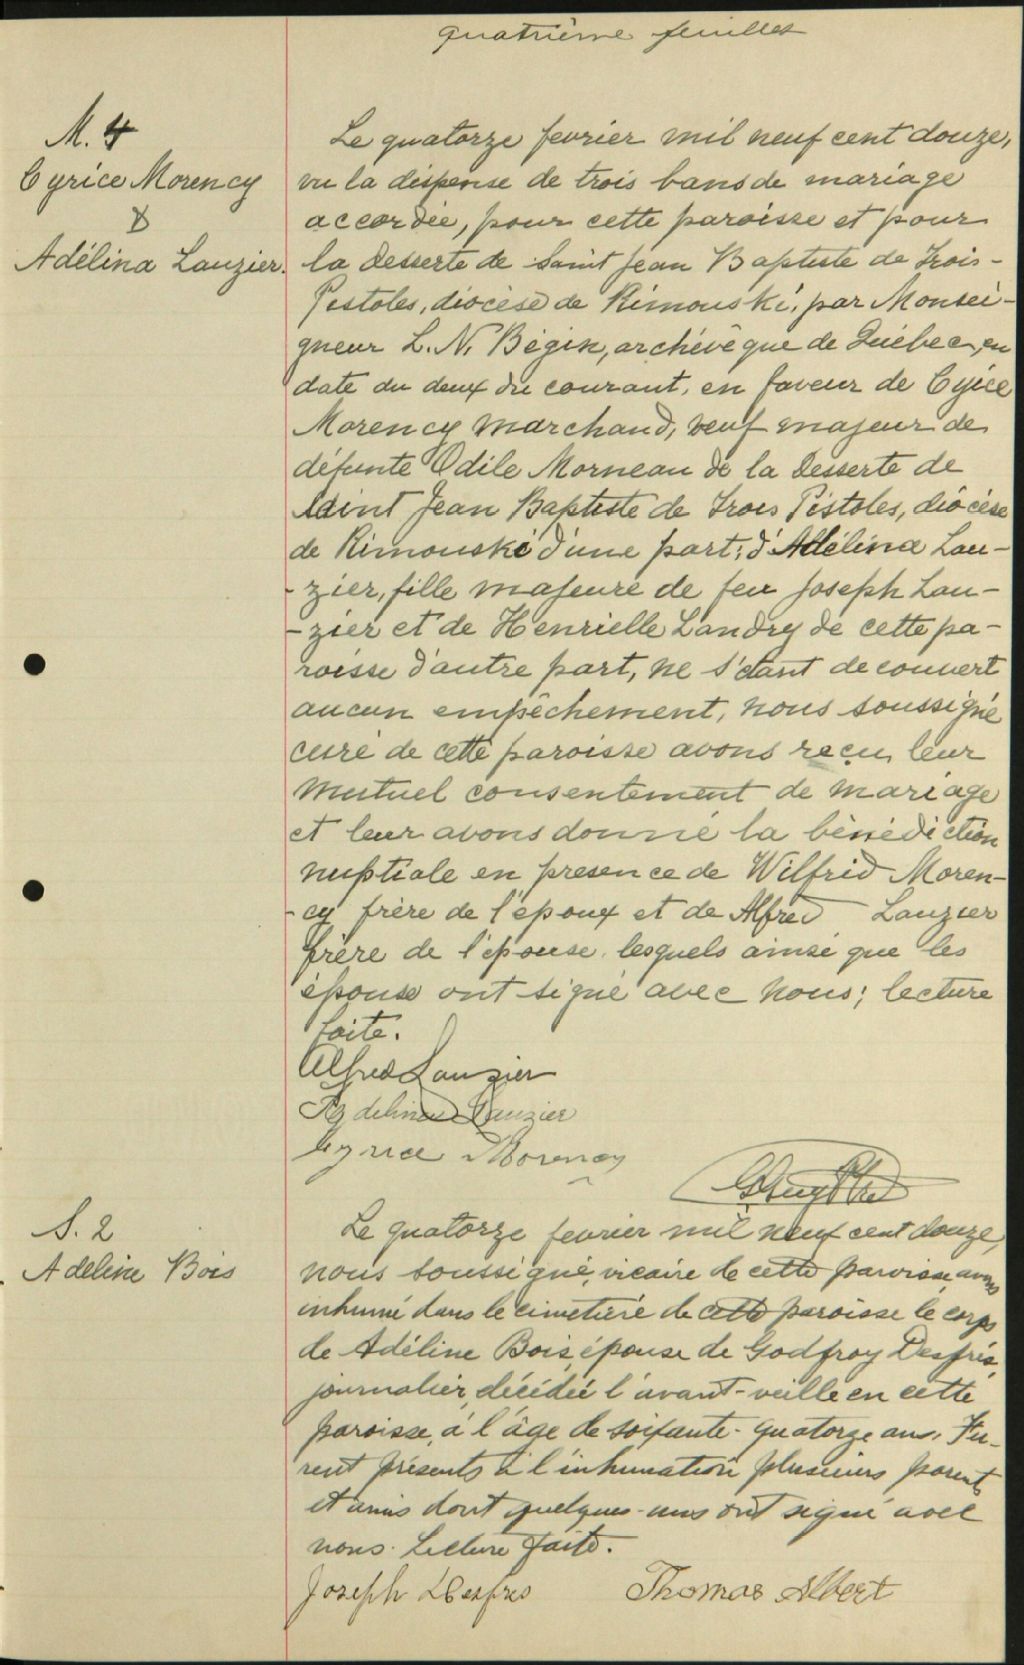 quatrième feuillet
M. 4
Cyrice Morency
&
Adélina Lauzier.
Le quatorze fevrier mil neuf cent douze,
vu la dispense de trois bans de mariage
accordée, pour cette paroisse et pour
la desserte de Saint Jean Baptiste de Trois-
Pistoles, diocèse de Rimouski, par Monsei-
gneur L. N. Bégin, archévêque de Québec, en
date du deux du courant, en faveur de Cyice
Morency marchand, veuf majeur de
défunte Odile Morneau de la desserte de
Saint Jean Baptiste de Trois Pistoles, diocèse
de Rimouski d'une part; d'Adélina Lau-
-zier, fille majeure de feu Joseph Lau-
-zier et de Henrielle Landry de cette pa-
roisse d'autre part, ne s'étant decouvert
aucun empêchement, nous soussigné
curé de cette paroisse avons reçu leur
mutuel consentement de mariage
et leur avons donné la bénédiction
nuptiale en presence de Wilfrid Moren-
-cy frère de l'époux et de Alfred Lauzier
frère de l'épouse lesquels ainsi que les
épouse ont signé avec nous; lecture
faite.
Alfred Lauzier
Adelina Lauzier
Cyrice Morency
S. 2
Adeline Bois
Le quatorze fevrier mil neuf cent douze,
nous soussigné, vicaire de cette paroisse, avons
inhumé dans le cimetière de cette paroisse le corps
de Adéline Bois, épouse de Godfroy Desfrés,
journalier, décédée l'avant-veille en cette
paroisse, à l'âge de soixante-quatorze ans. Fu-
rent présents à l'inhumation plusieurs parents
et amis dont quelques-uns ont signé avec
nous. Lecture faite.
Joseph Desfres
Thomas Albert